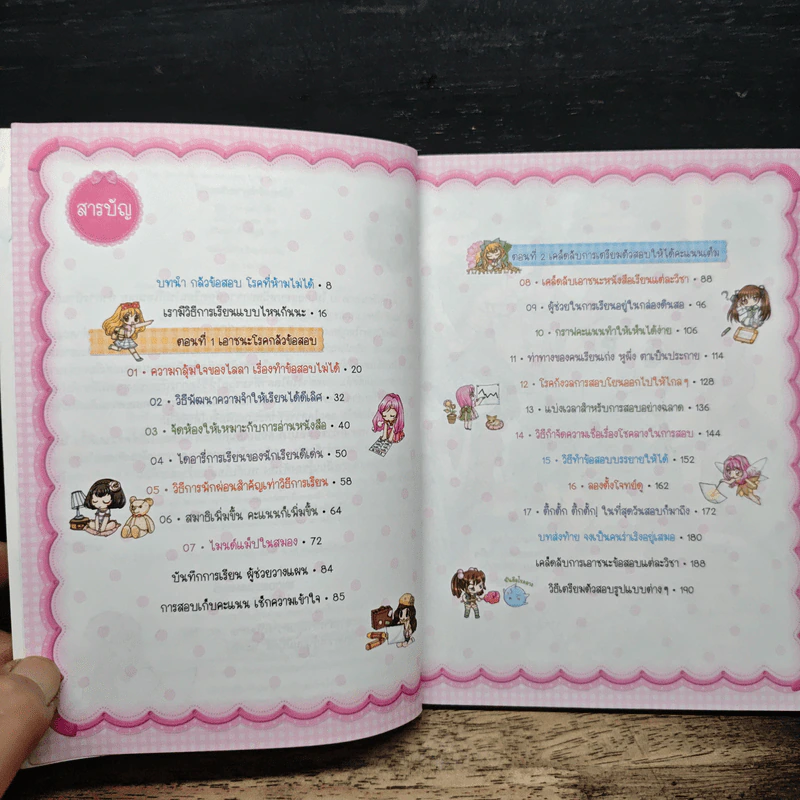 สารบัญ
บทนำ กลัวข้อสอบ โรคที่ห้ามไม่ได้ • 8
เรามีวิธีการเรียนแบบไหนกันนะ • 16
ตอนที่ 1 เอาชนะโรคกลัวข้อสอบ
01 • ความกลุ้มใจของไลลา เรื่องทำข้อสอบไม่ได้ • 20
02 • วิธีพัฒนาความจำให้เรียนได้ดีเลิศ • 32
03 • จัดห้องให้เหมาะกับการอ่านหนังสือ • 40
04 • ไดอารี่การเรียนของนักเรียนดีเด่น • 50
05 • วิธีการพักผ่อนสำคัญเท่าวิธีการเรียน • 58
06 • สมาธิเพิ่มขึ้น คะแนนก็เพิ่มขึ้น • 64
07 • ไมนด์แม็ปในสมอง • 72
บันทึกการเรียน ผู้ช่วยวางแผน • 84
การสอบเก็บคะแนน เช็กความเข้าใจ • 85
ตอนที่ 2 เคล็ดลับการเตรียมตัวสอบให้ได้คะแนนเต็ม
08 • เคล็ดลับเอาชนะหนังสือเรียนแต่ละวิชา • 88
09 • ผู้ช่วยในการเรียนอยู่ในกล่องดินสอ • 96
10 • กราฟคะแนนทำให้เห็นได้ง่าย • 106
11 • ท่าทางของคนเรียนเก่ง หูผึ่ง ตาเป็นประกาย • 114
12 • โรคกังวลการสอบโยนออกไปให้ไกลๆ • 128
13 • แบ่งเวลาสำหรับการสอบอย่างฉลาด • 136
14 • วิธีกำจัดความเชื่อเรื่องโชคลางในการสอบ • 144
15 • วิธีทำข้อสอบบรรยายให้ได้ • 152
16 • ลองตั้งโจทย์ดู • 162
17 • ติ๊กต็ก ติ๊กต็ก! ในที่สุดวันสอบก็มาถึง • 172
บทส่งท้าย จงเป็นคนร่าเริงอยู่เสมอ • 180
เคล็ดลับการเอาชนะข้อสอบแต่ละวิชา • 188
วิธีเตรียมตัวสอบรูปแบบต่างๆ • 190